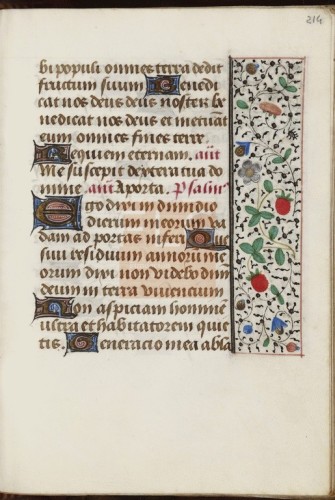 214
bi populi omnes terra dedit
fructum suum Benedi
cat nos deus deus noster be
nedicat nos deus et metuāt
eum omnes fines terre.
Requiem eternam. añt
Me suscepit dextera tua do
mine añt A porta. psalm⁹
Ego dixi in dimidio
dierum meorum va
dam ad portas inferi Que
sivi residuum annorum me
orum dixi non videbo dnm
deum in terra viventium
Non aspiciam hominē
ultra et habitatorem quie
tis. Generacio mea abla